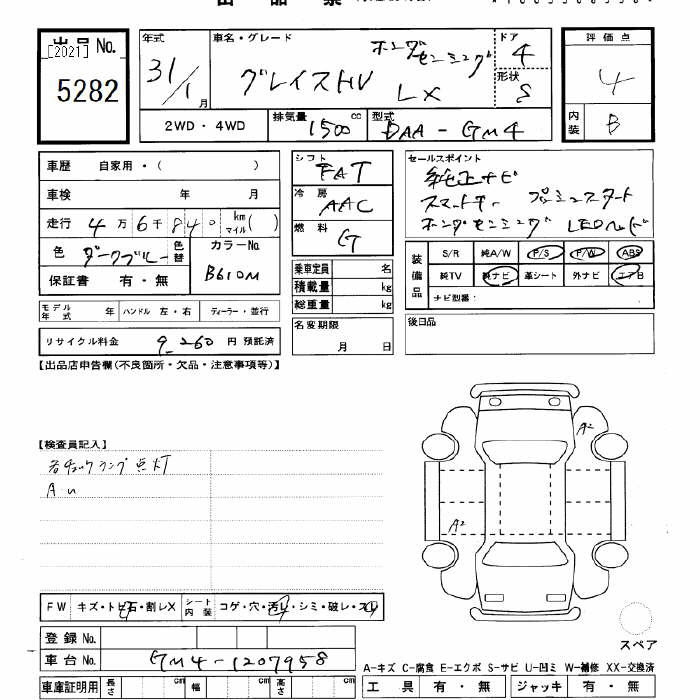 出品票
出品No.
[2021]
5282
年式 31/1 月
車名・グレード ホンダセンシング
グレイスHV LX
ドア 4
形状 S
2WD・4WD
排気量 1500 cc
型式 DAA-GM4
評価点 4
内装 B
車歴 自家用・( )
車検 年 月
走行 4万6千840 km マイル( )
色 ダークブルー 色替
カラーNo. B610M
保証書 有・無
モデル年式 年 ハンドル 左・右 ディーラー・並行
リサイクル料金 9,260 円 預託済
シフト FAT
冷房 AAC
燃料 G
乗車定員 名
積載量 kg
総重量 kg
名変期限
月 日
セールスポイント
純正ナビ
スマートキー プッシュスタート
ホンダセンシング LEDヘッド
装備品
S/R 純A/W P/S P/W ABS
純TV 純ナビ 革シート 外ナビ エアB
ナビ型番:
後日品
【出品店申告欄(不良箇所・欠品・注意事項等)】
【検査員記入】
各チェックランプ点灯
A u
A2
A2
FW キズ・トビ石・割レX
シート内装 コゲ・穴・汚レ・シミ・破レ・スレ
登録No.
車台No. GM4-1207958
車庫証明用 長さ cm 幅 cm 高さ cm
スペア
A-キズ C-腐食 E-エクボ S-サビ U-凹ミ W-補修 XX-交換済
工具 有・無 ジャッキ 有・無